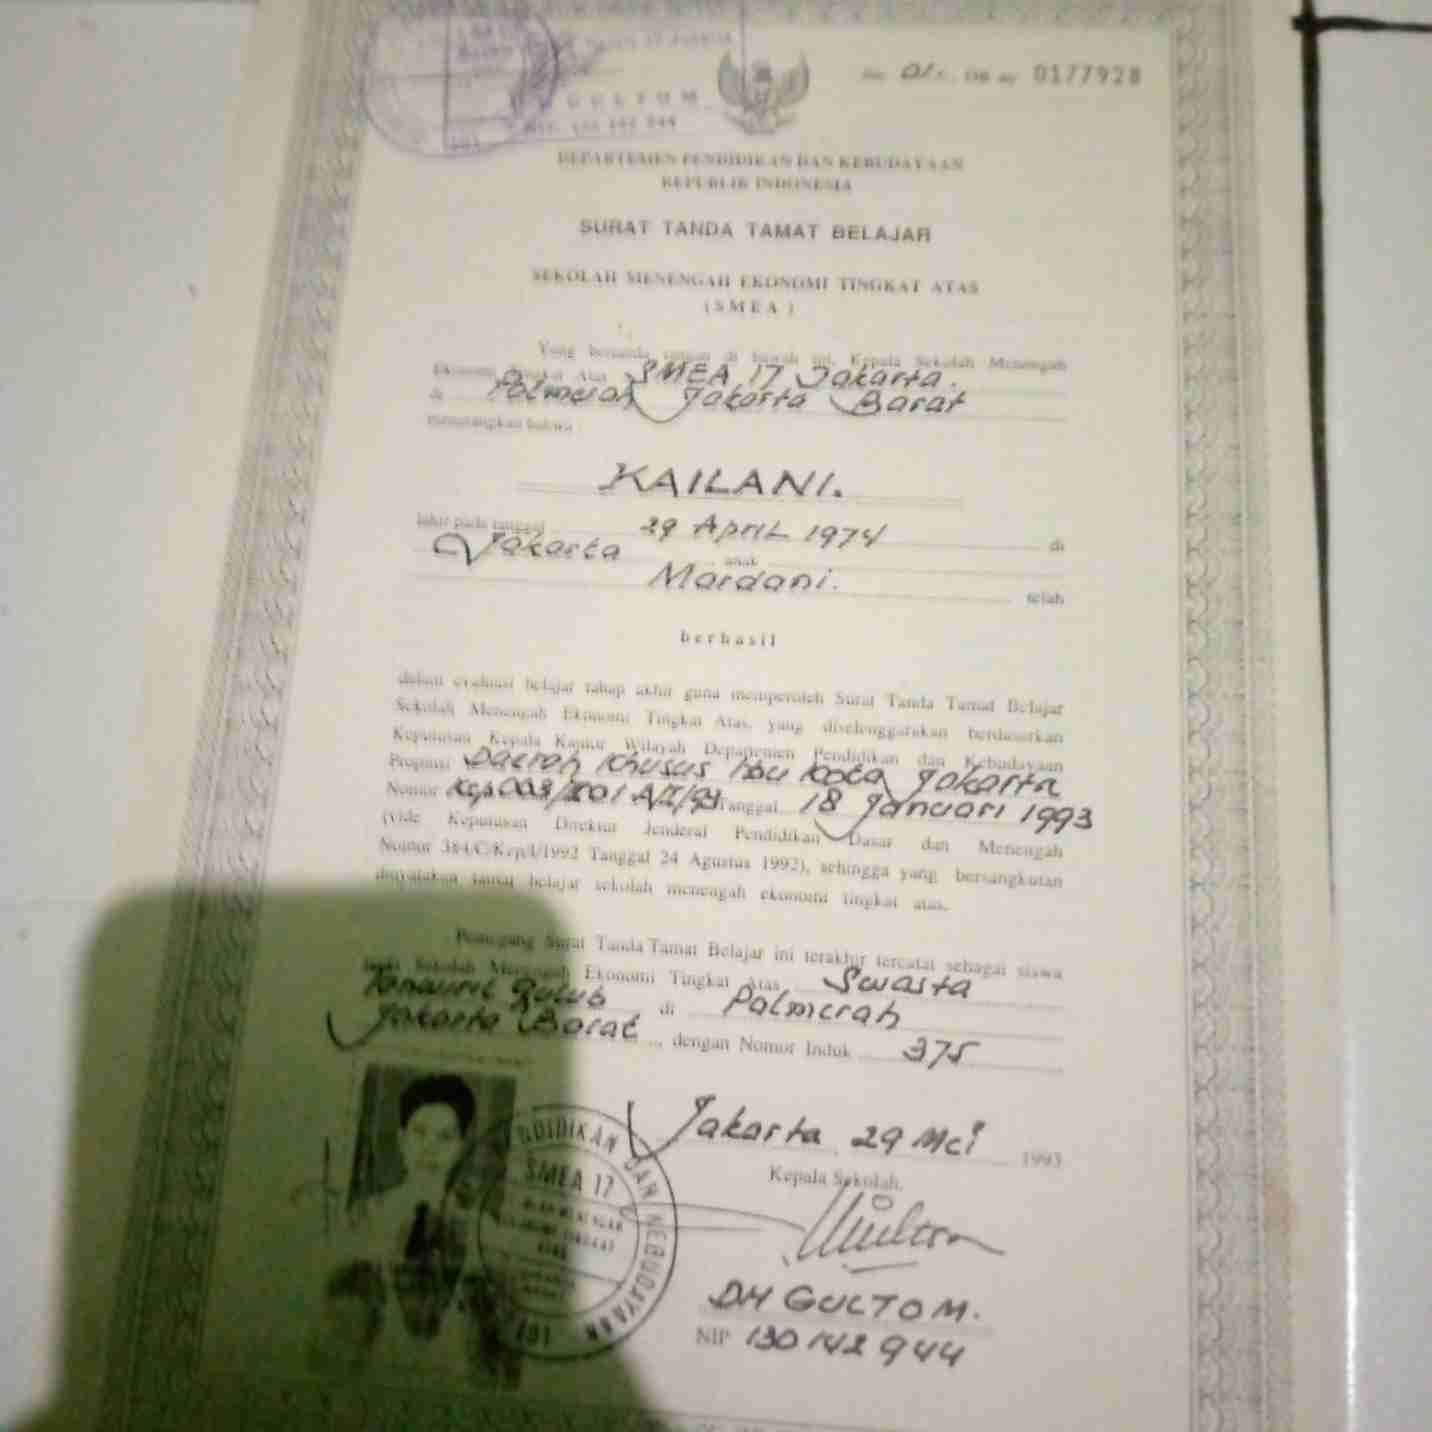 GULTOM
0177928
DEPARTEMEN PENDIDIKAN DAN KEBUDAYAAN
REPUBLIK INDONESIA
SURAT TANDA TAMAT BELAJAR
SEKOLAH MENENGAH EKONOMI TINGKAT ATAS
( S M E A )
Yang bertanda tangan di bawah ini, Kepala Sekolah Menengah
Ekonomi Tingkat Atas SMEA 17 Jakarta.
di Palmerah Jakarta Barat
menerangkan bahwa
KAILANI.
lahir pada tanggal 29 April 1974 di
Jakarta anak
Mardani. telah
berhasil
dalam evaluasi belajar tahap akhir guna memperoleh Surat Tanda Tamat Belajar
Sekolah Menengah Ekonomi Tingkat Atas, yang diselenggarakan berdasarkan
Keputusan Kepala Kantor Wilayah Departemen Pendidikan dan Kebudayaan
Propinsi Daerah Khusus Ibu Kota Jakarta
Nomor Tanggal 18 Januari 1993
(vide Keputusan Direktur Jenderal Pendidikan Dasar dan Menengah
Nomor 384/C/Kep/I/1992 Tanggal 24 Agustus 1992), sehingga yang bersangkutan
dinyatakan tamat belajar sekolah menengah ekonomi tingkat atas.
Pemegang Surat Tanda Tamat Belajar ini terakhir tercatat sebagai siswa
pada Sekolah Menengah Ekonomi Tingkat Atas Swasta
Tanwirul Qulub di Palmerah
Jakarta Barat, dengan Nomor Induk 375
Jakarta, 29 Mei 1993
Kepala Sekolah,
PENDIDIKAN DAN KEBUDAYAAN
SMEA 17
DH GULTOM.
NIP 130142944